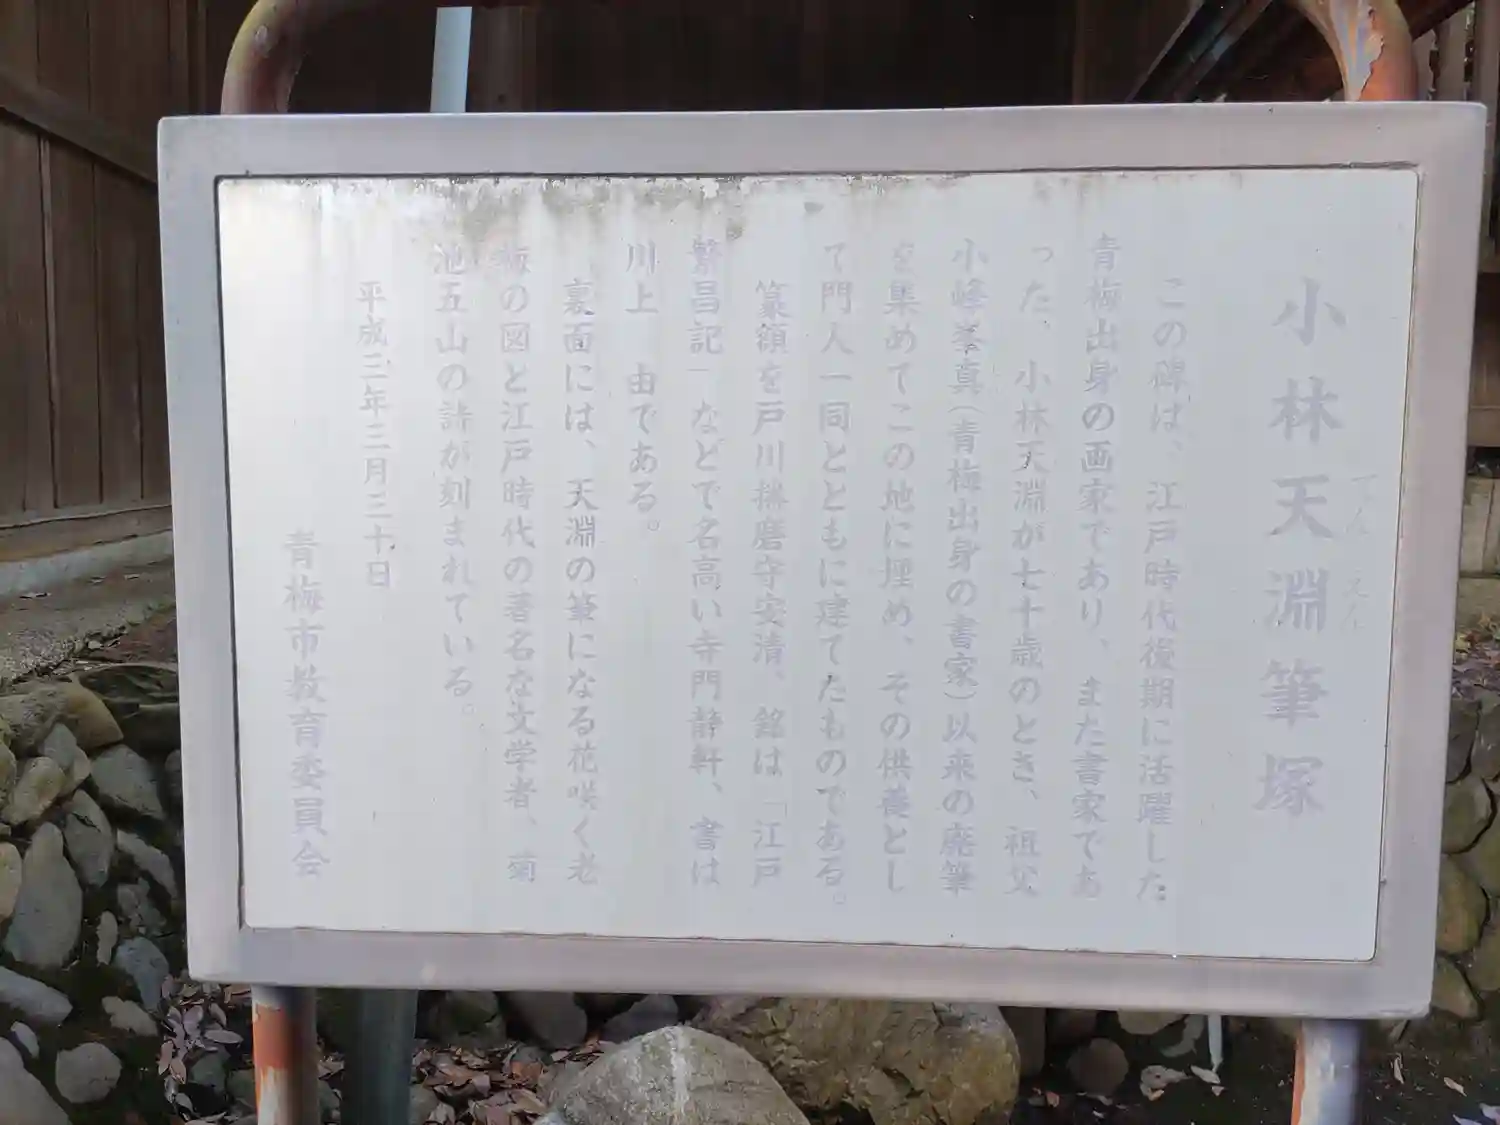 小林天淵筆塚
てん えん
この碑は、江戸時代後期に活躍した
青梅出身の画家であり、また書家であ
った、小林天淵が七十歳のとき、祖父
小峰峯真(青梅出身の書家)以来の廃筆
を集めてこの地に埋め、その供養とし
て門人一同とともに建てたものである。
篆額を戸川播磨守安清、銘は「江戸
繁昌記」などで名高い寺門静軒、書は
川上 由である。
裏面には、天淵の筆になる花咲く老
梅の図と江戸時代の著名な文学者、菊
池五山の詩が刻まれている。
平成三年三月三十日
青梅市教育委員会